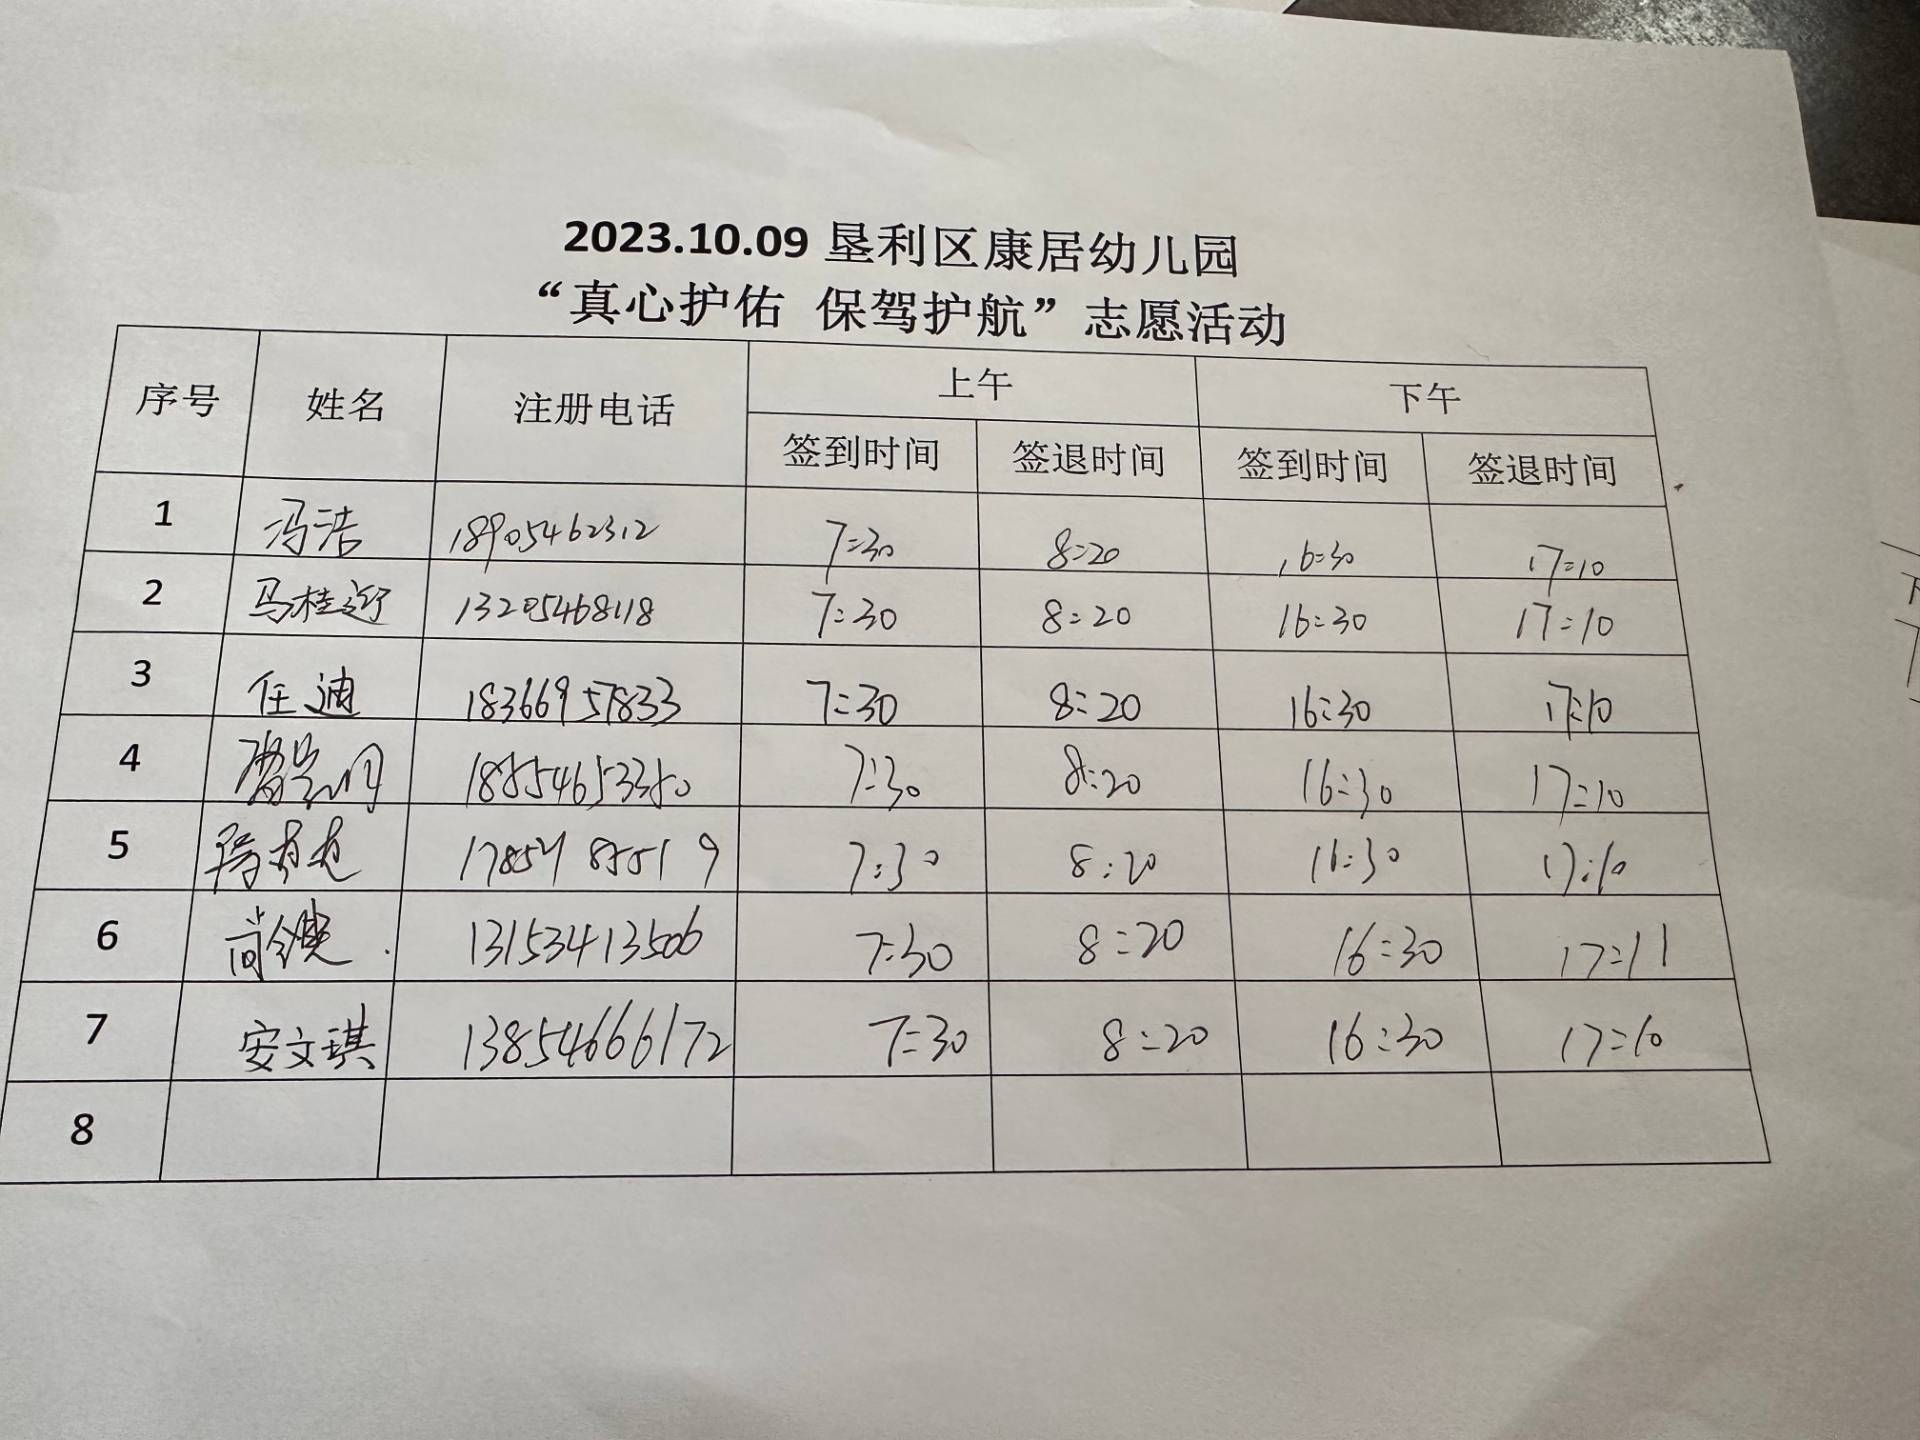 2023.10.09 垦利区康居幼儿园
“真心护佑 保驾护航”志愿活动
序号 姓名 注册电话 上午 下午
签到时间 签退时间 签到时间 签退时间
1 冯浩 18905462312 7:30 8:20 16:30 17:10
2 马桂 13205468118 7:30 8:20 16:30 17:10
3 任迪 18366957833 7:30 8:20 16:30 17:10
4 18854653380 7:30 8:20 16:30 17:10
5 7:30 8:20 16:30 17:10
6 尚 13153413506 7:30 8:20 16:30 17:11
7 安文琪 13854666172 7:30 8:20 16:30 17:10
8